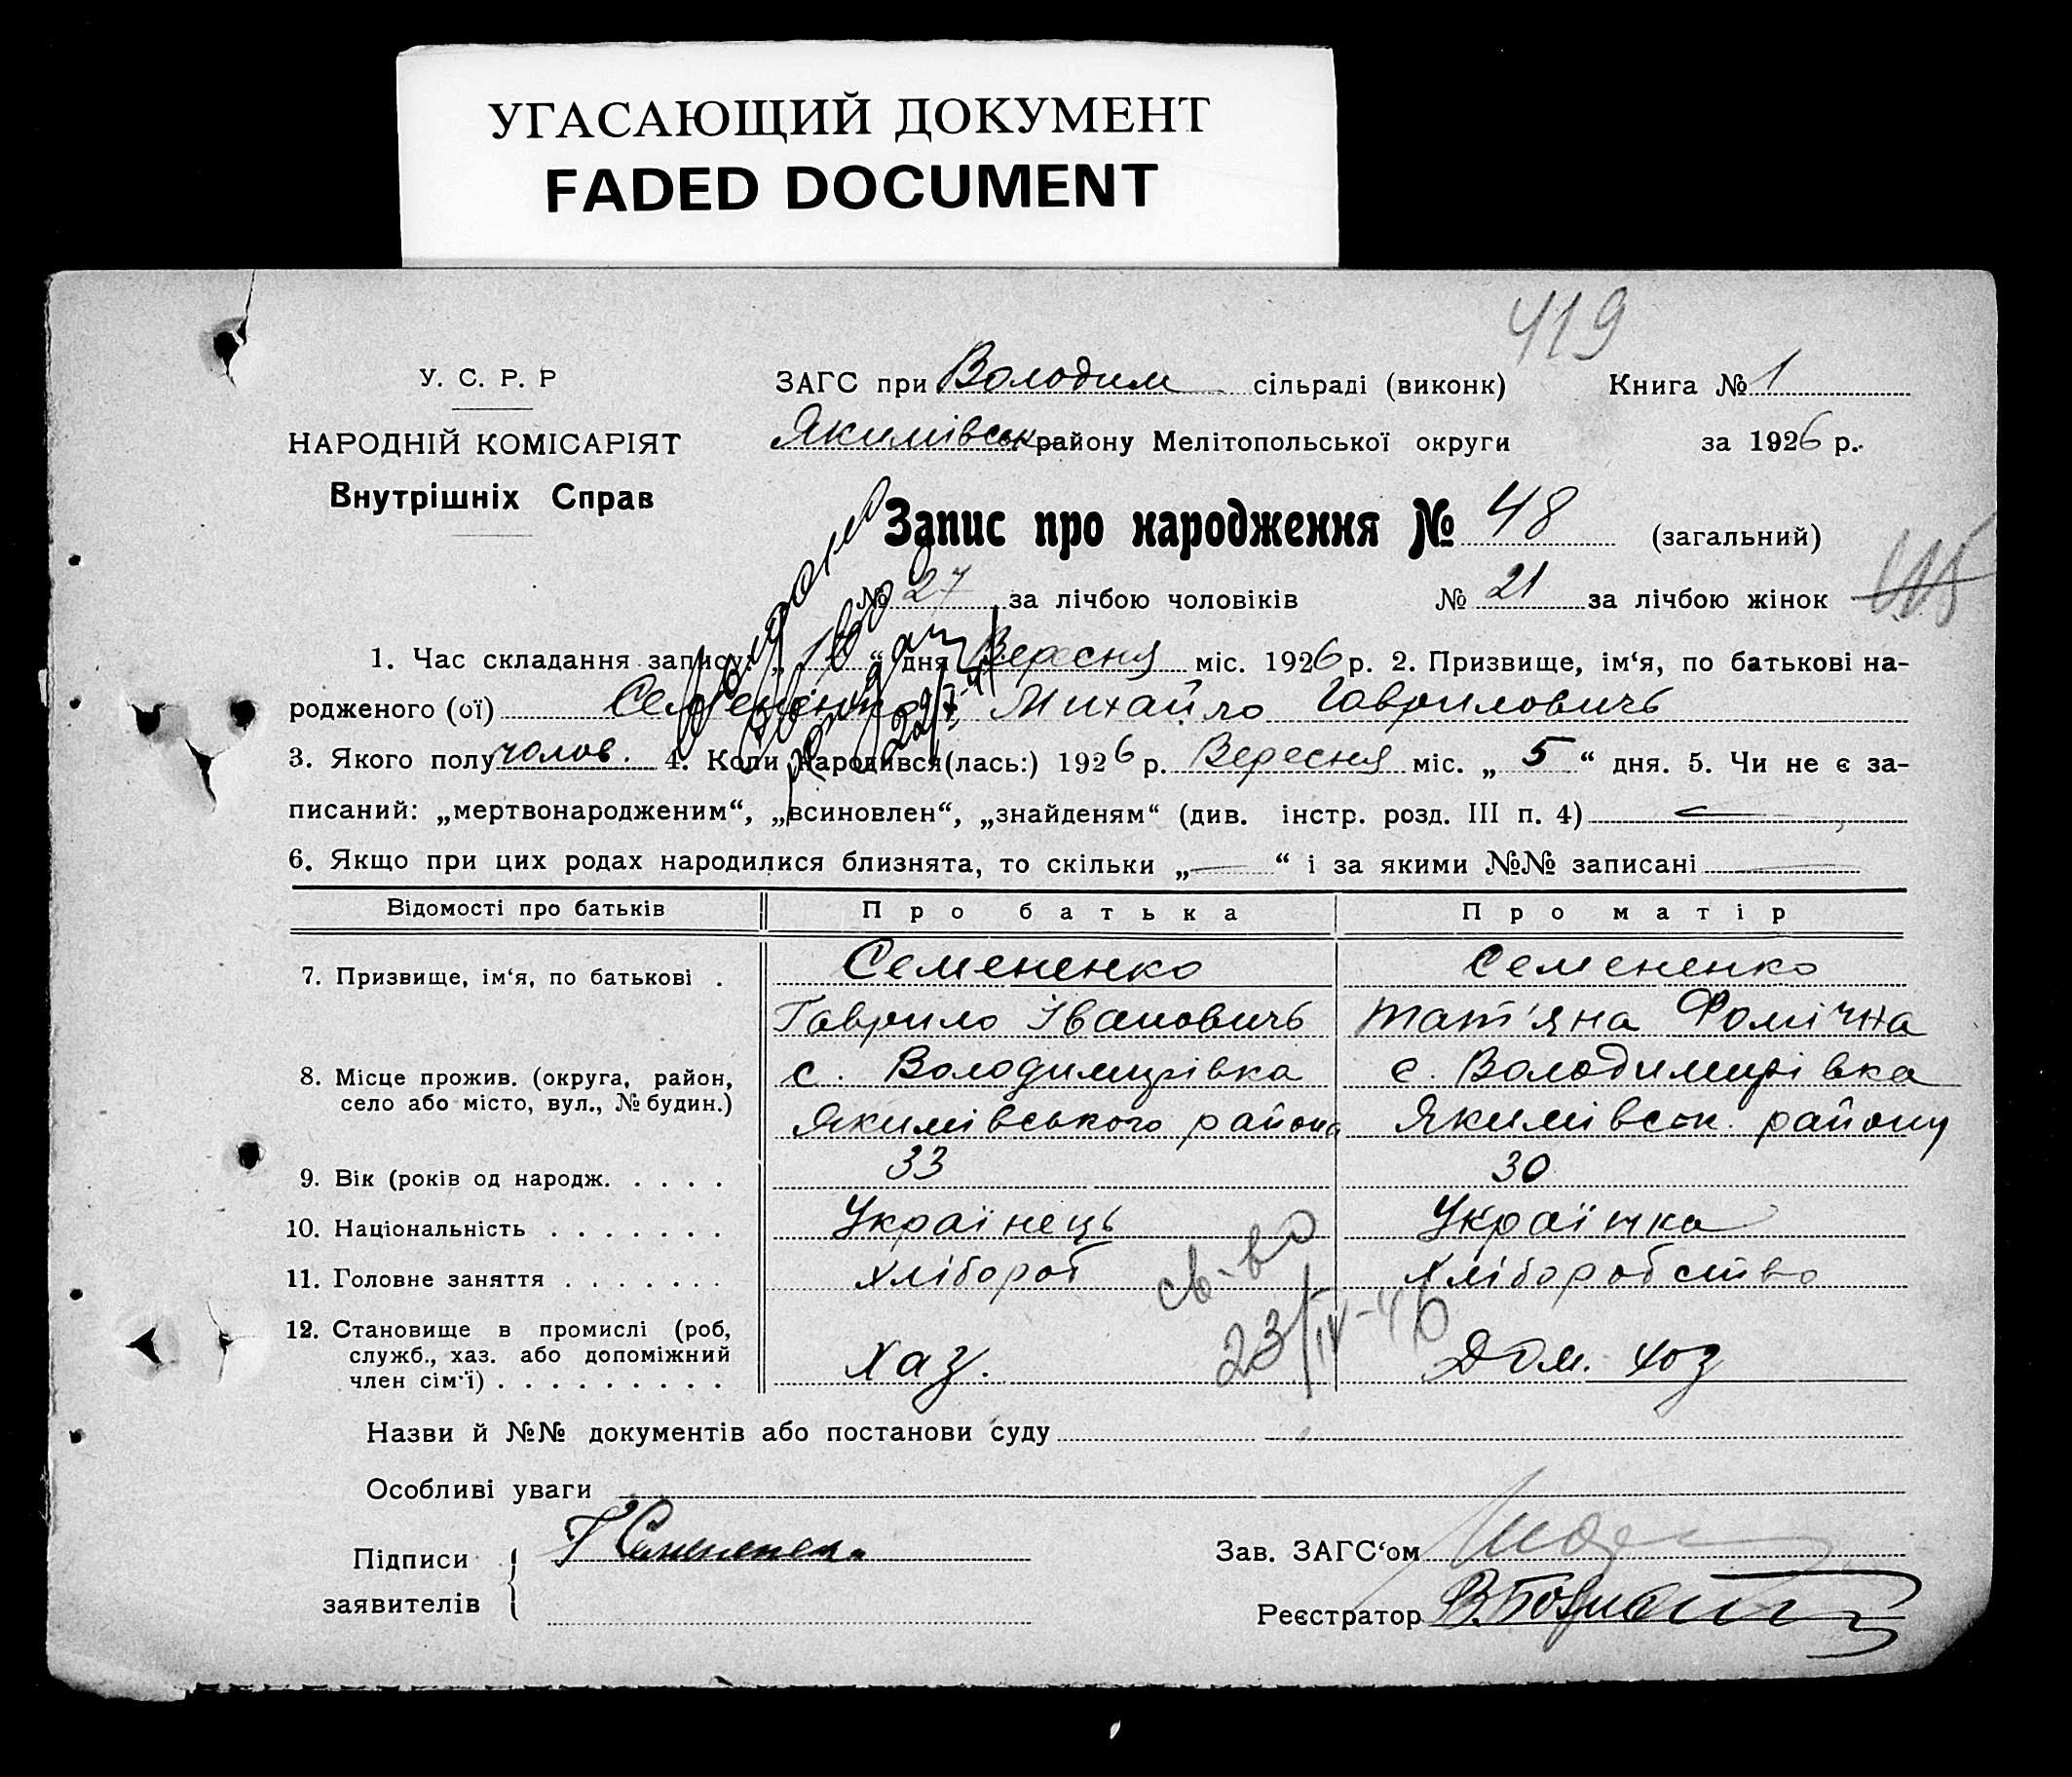 УГАСАЮЩИЙ ДОКУМЕНТ
FADED DOCUMENT
419
У. С. Р. Р
НАРОДНІЙ КОМІСАРІЯТ
Внутрішніх Справ
ЗАГС при Володим сільраді (виконк) Книга № 1
Якимівськ району Мелітопольської округи за 1926 р.
Запис про народження № 48 (загальний)
№ 27 за лічбою чоловіків № 21 за лічбою жінок
1. Час складання запису: „ 10 “ дня Вересня міс. 1926 р. 2. Призвище, ім‘я, по батькові на-
родженого (ої) Семененко Михайло Гаврилович
3. Якого полу чолов. 4. Коли народився(лась:) 1926 р. Вересня міс. „ 5 “ дня. 5. Чи не є за-
писаний: „мертвонародженим“, „всиновлен“, „знайденям“ (див. інстр. розд. III п. 4)
6. Якщо при цих родах народилися близнята, то скільки „ — “ і за якими №№ записані —
Відомості про батьків Про батька Про матір
7. Призвище, ім‘я, по батькові . Семененко Семененко
Гаврило Івановичь Тат'яна Фомічна
8. Місце прожив. (округа, район, с. Володимирівка с. Володимирівка
село або місто, вул., № будин.) Якимівського района Якимівськ. району
9. Вік (років од народж. . . . . 33 30
10. Національність . . . . . . . Українець Українка
11. Головне заняття . . . . . . . Хлібороб Хліборобство
св-во
23/IV-46
12. Становище в промислі (роб,
служб., хаз. або допоміжний Хаз. Дом. хоз
член сім‘ї) . . . . . . . . .
Назви й №№ документів або постанови суду
Особливі уваги
Підписи Г Семененко Зав. ЗАГС‘ом
заявителів Реєстратор